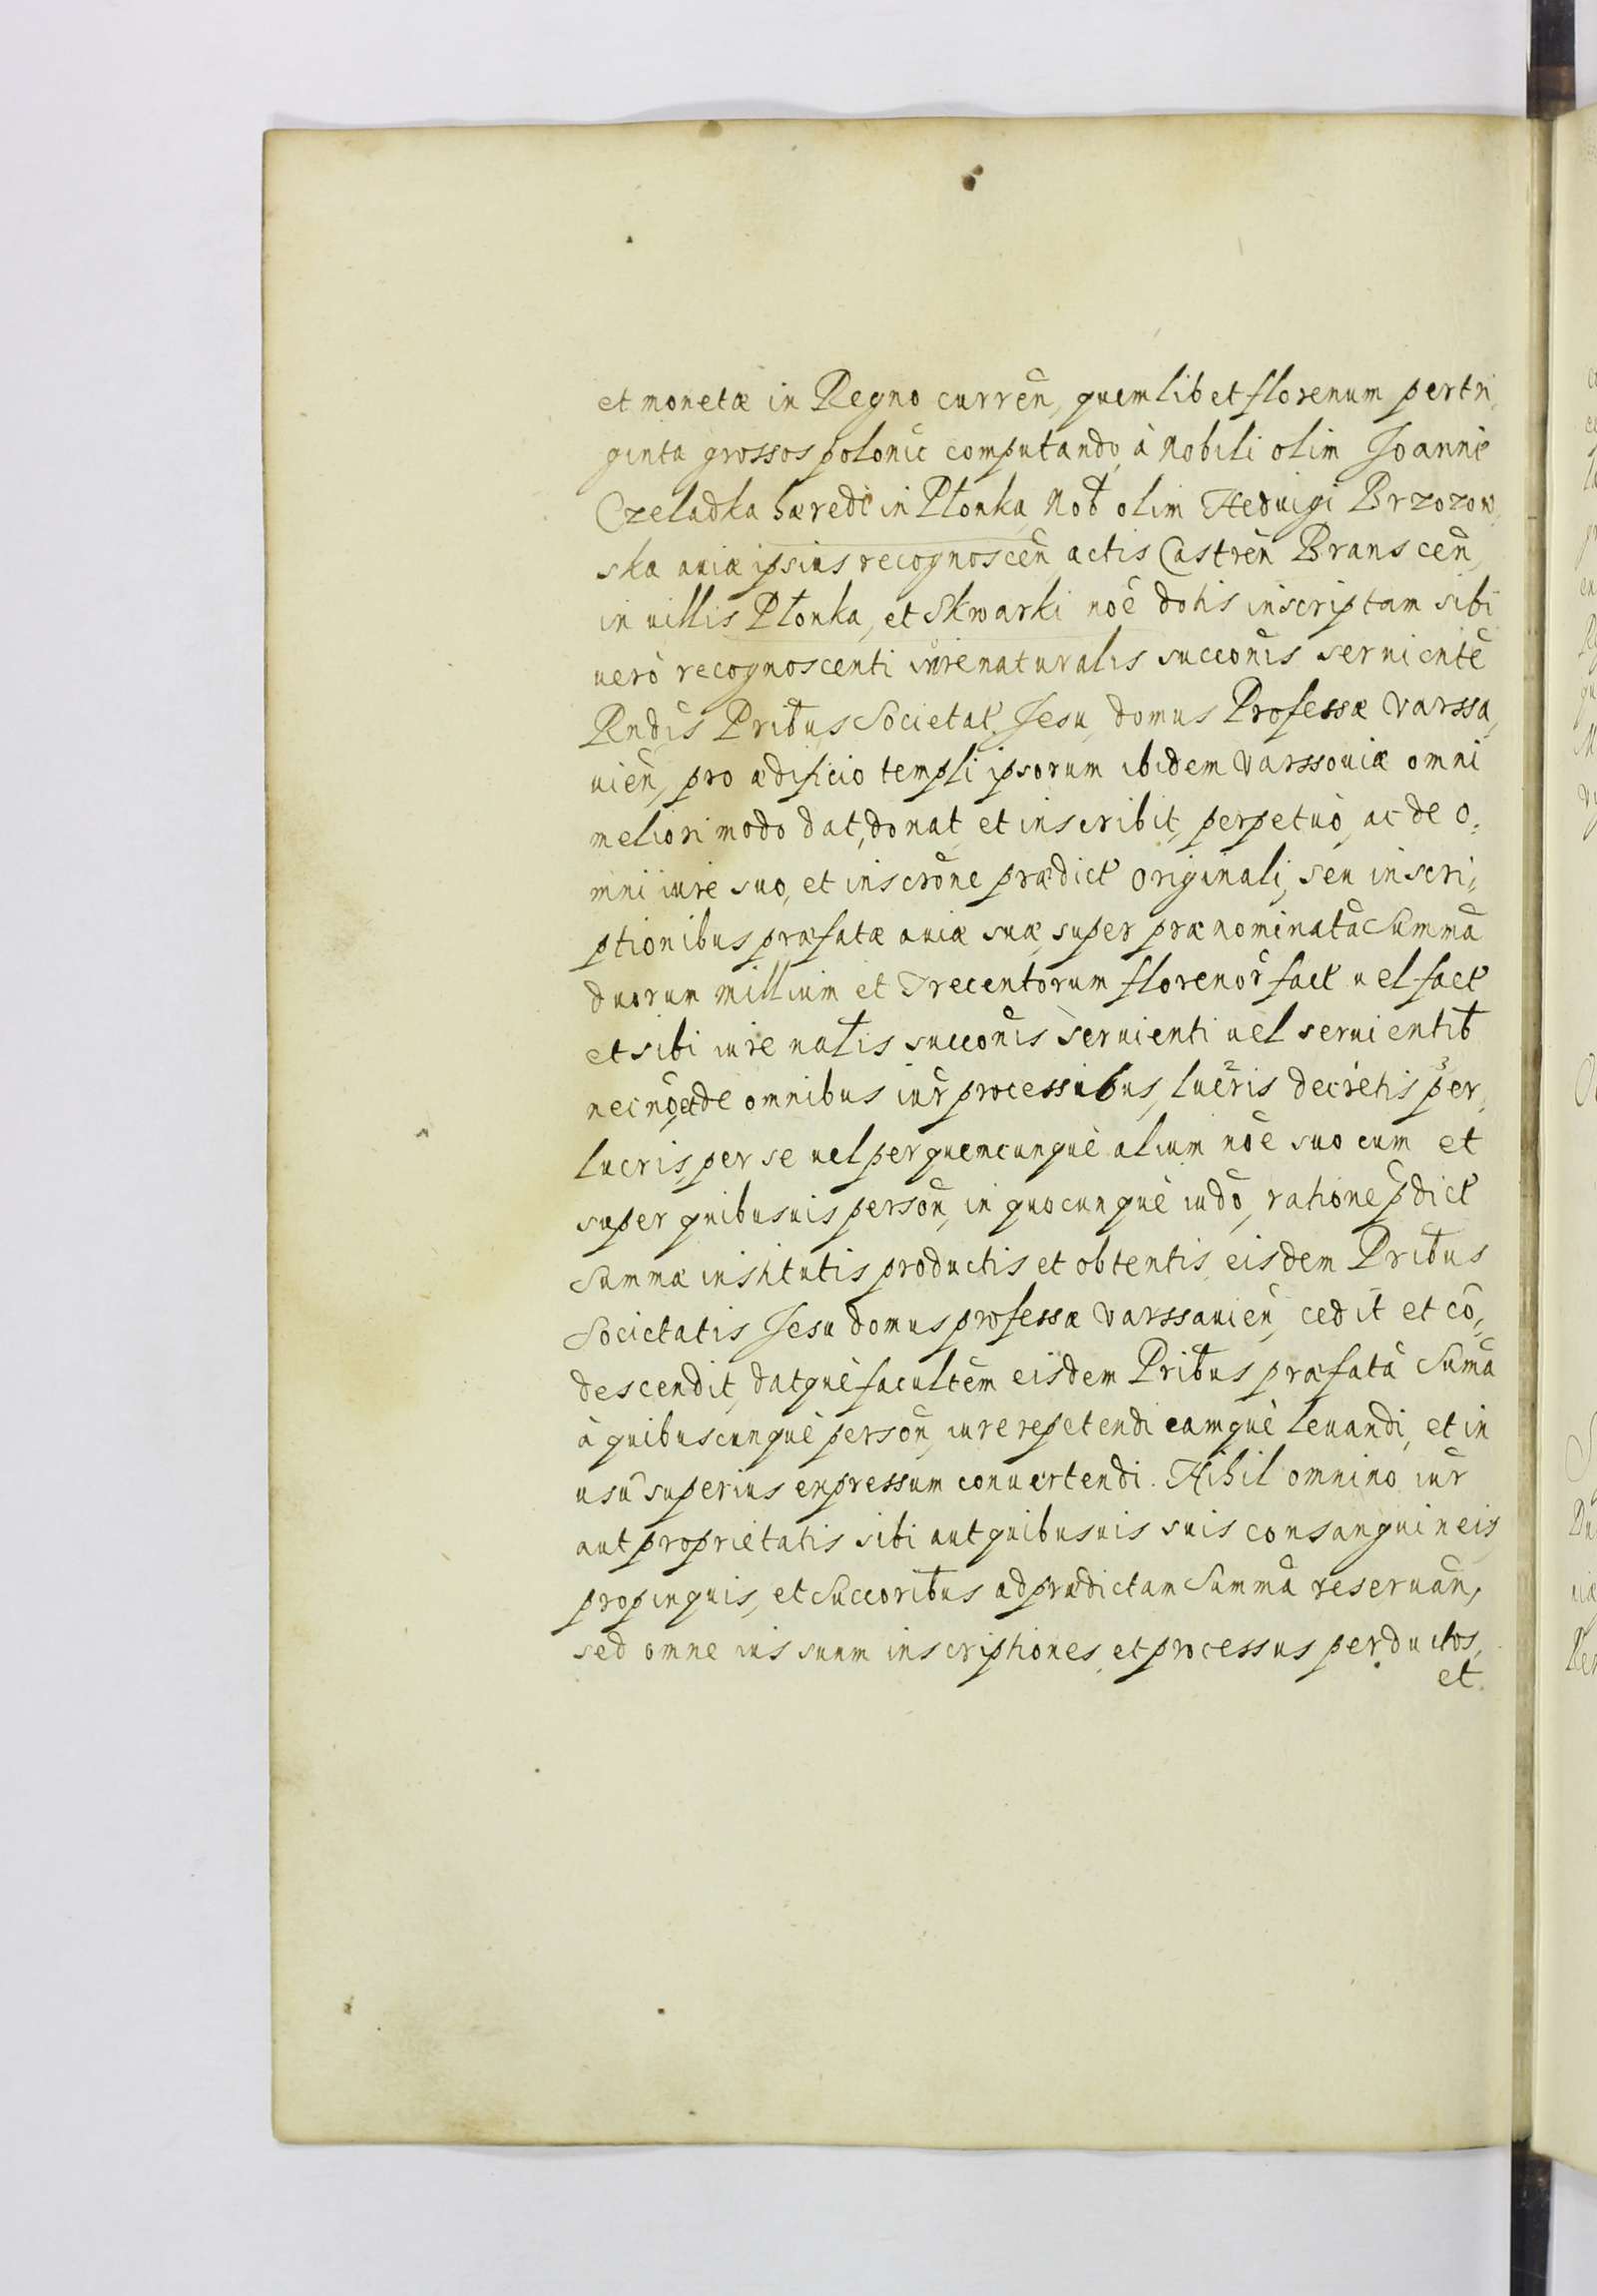 et monetæ in Regno curreñ, quemlibet florenum per tri,
ginta grossos polonic̄ computando, à Nobili olim Joanne
Czeladka hæredē in Płonka, Nob̄ olim Heduigi Brzozow,
ska auiæ ipsius recognosceñ actis Castreñ Bransceñ,
in uillis Płonka, et Skwarki nōe dotis inscriptam sibi
uerò recognoscenti iure naturalis succōnis seruientē
Rndis Prib̄us Societat̄. Jesu, domus Professæ Varssa,
uień, pro ædificio templi ipsorum ibidem Varssouiæ omni
meliori modo dat, donat, et inscribit, perpetuò, ac de o,
mni iure suo, et inscrōne prædict̄ originali, seu inscri,
ptionibus præfatæ auiæ suæ, super prænominatā Summā
duorum millium et Trecentorum florenor̄ fact̄ uel fact̄
et sibi iure nat̄lis succōnis seruienti uel seruientib̄
nec nō et de omnibus iur̄ processibus, lucris decretis per,
lucris, per se uel per quemcunque alium nōe suo cum et
super quibusuis persōn, in quocunque iudō, ratione p̄dict̄
Summæ institutis productis et obtentis, eisdem Prib̄us
Societatis Jesu domus professæ Varssauieñ, cedit et cō,
descendit, datque facultēm eisdem Prib̄us præfatā Sum̄ā
à quibuscunque persōn, iure repetendi eamque leuandi, et in
usū superius expressum conuertendi. Nihil omnino iur̄
aut proprietatis sibi aut quibusuis suis consanguineis,
propinquis, et Succorib̄us ad prædictam Summā reseruañ,
sed omne ius suum inscriptiones, et processus perductos,
et